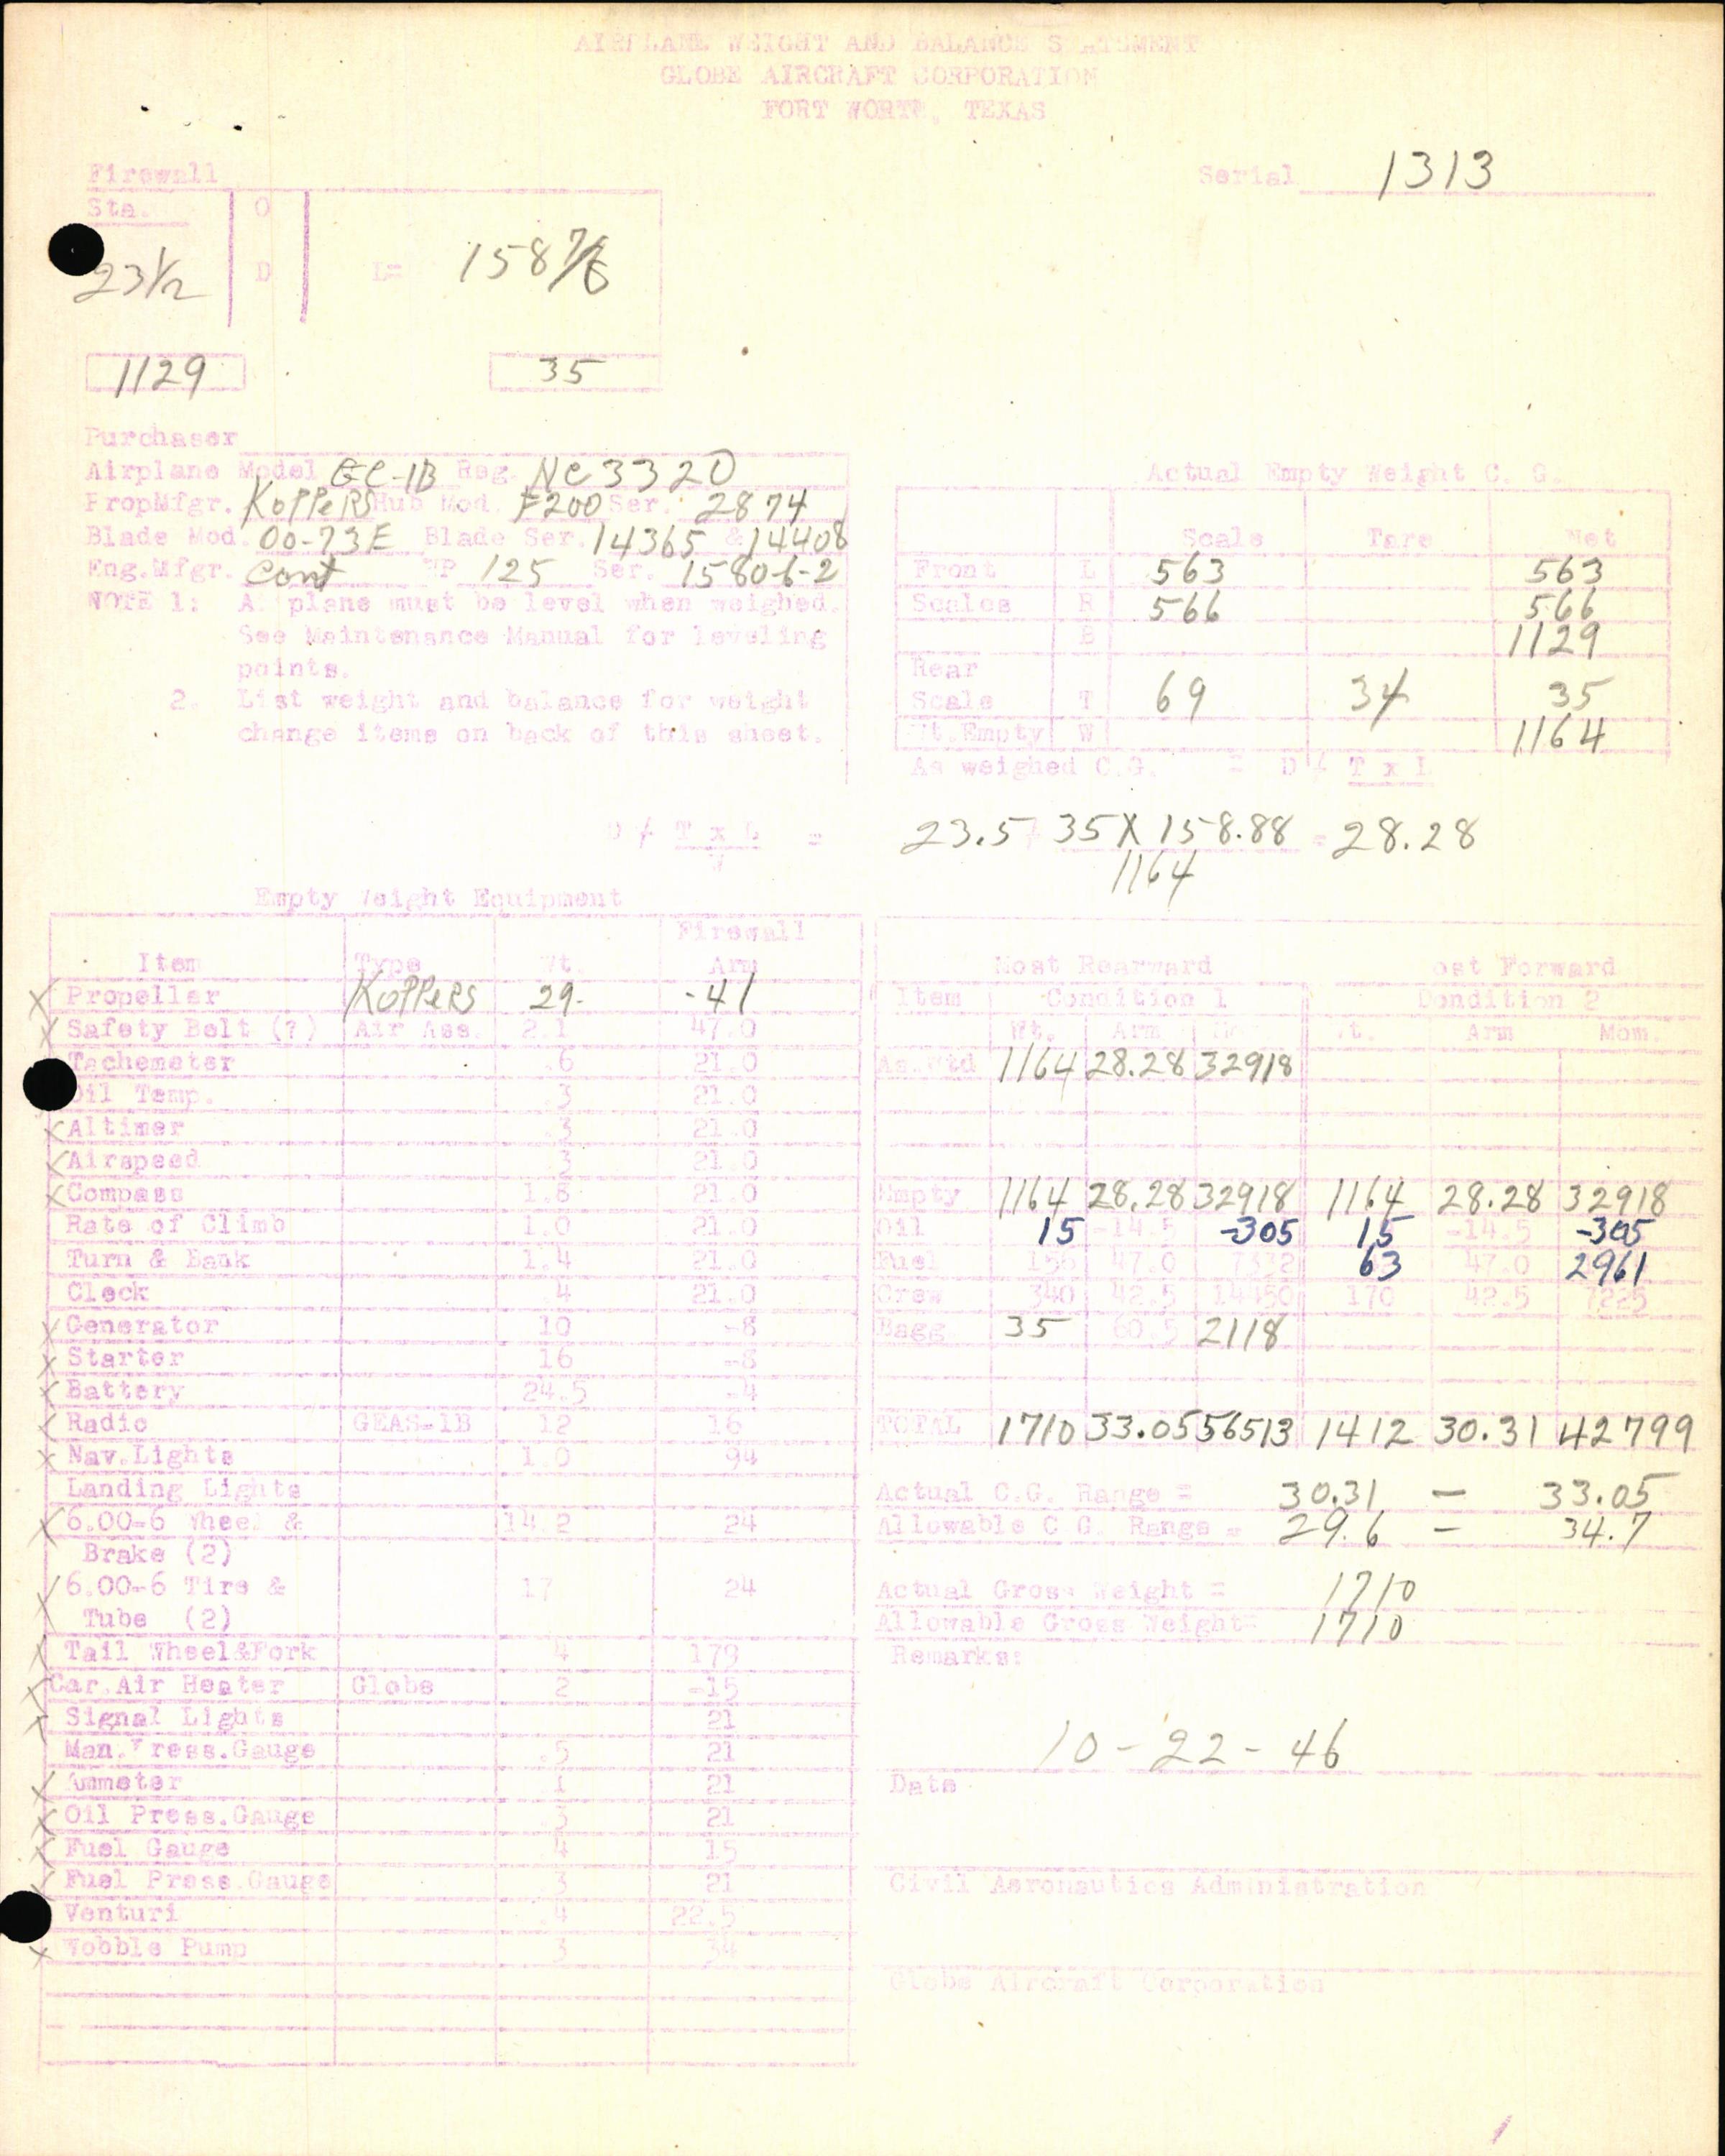 AIRPLANE WEIGHT AND BALANCE STATEMENT
GLOBE AIRCRAFT CORPORATION
FORT WORTH, TEXAS
Serial 1313
Firewall
Sta. O
23 1/2 D L= 158 7/8
1129 35
Purchaser
Airplane Model GC-1B Reg. NC3320
PropMfgr. KOPPERS Hub Mod. F200 Ser. 2874
Blade Mod. 00-73E Blade Ser. 14365 & 14408
Eng.Mfgr. Cont HP 125 Ser. 15806-2
NOTE 1: A plane must be level when weighed.
See Maintenance Manual for leveling
points.
2. List weight and balance for weight
change items on back of this sheet.
Actual Empty Weight C. G.
Scale Tare Net
Front L 563 563
Scales R 566 566
B 1129
Rear
Scale T 69 34 35
Wt.Empty W 1164
As weighed C.G. = D / T x L
D / T x L =
W
23.5 / 35 X 158.88 = 28.28
1164
Empty Weight Equipment
Firewall
Item Type Wt. Arm
Propeller KOPPERS 29- -41
Safety Belt (?) Air Ass. 2.1 47.0
Tachometer .6 21.0
Oil Temp. .3 21.0
Altimer .3 21.0
Airspeed .3 21.0
Compass 1.8 21.0
Rate of Climb 1.0 21.0
Turn & Bank 1.4 21.0
Clock .4 21.0
Generator 10 -8
Starter 16 -8
Battery 24.5 -4
Radio GEAS-1B 12 16
Nav.Lights 1.0 94
Landing Lights
6.00-6 Wheel & 14.2 24
Brake (2)
6.00-6 Tire & 17 24
Tube (2)
Tail Wheel&Fork 4 179
Car.Air Heater Globe 2 -15
Signal Lights 21
Man.Press.Gauge .5 21
Ammeter 1 21
Oil Press.Gauge .3 21
Fuel Gauge .4 15
Fuel Press.Gauge .3 21
Venturi .4 22.5
Wobble Pump 3 34
Most Rearward Most Forward
Item Condition 1 Condition 2
Wt. Arm Mom. Wt. Arm Mom.
As.Wtd 1164 28.28 32918
Empty 1164 28.28 32918 1164 28.28 32918
Oil 15 -14.5 -305 15 -14.5 -305
Fuel 156 47.0 7332 63 47.0 2961
Crew 340 42.5 14450 170 42.5 7225
Bagg 35 60.5 2118
TOTAL 1710 33.05 56513 1412 30.31 42799
Actual C.G. Range = 30.31 - 33.05
Allowable C.G. Range = 29.6 - 34.7
Actual Gross Weight = 1710
Allowable Gross Weight= 1710
Remarks:
10-22-46
Date
Civil Aeronautics Administration
Globe Aircraft Corporation